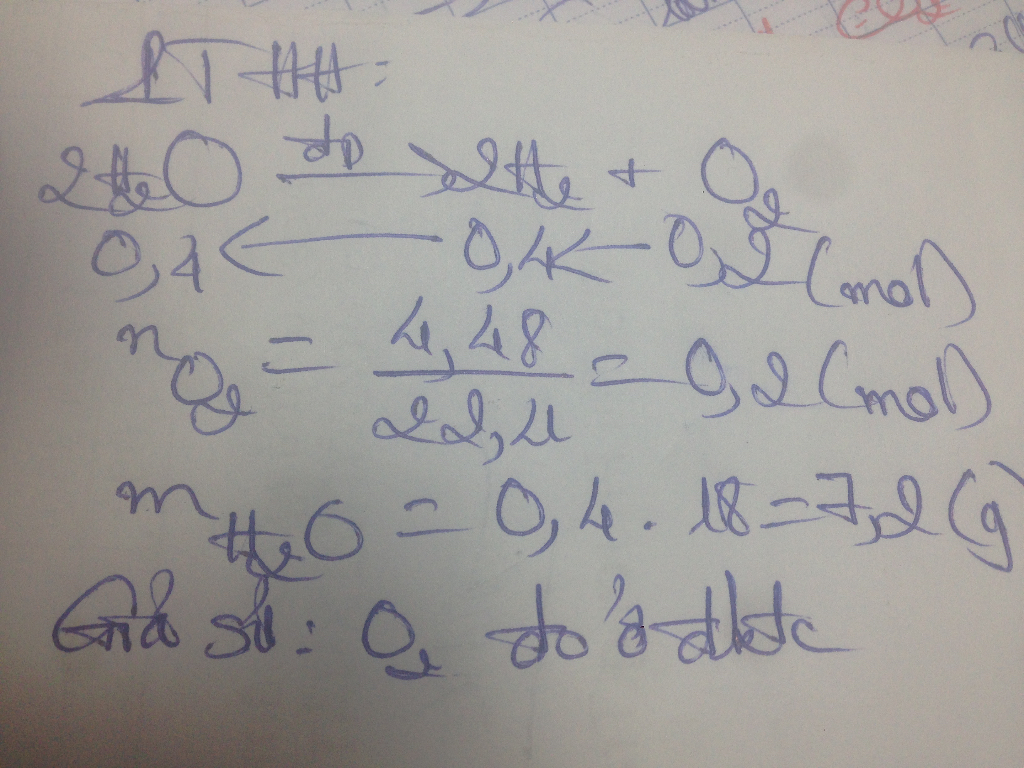 PTHH:
2H₂O --đp--> 2H₂ + O₂
0,4 <-- 0,4 <-- 0,2 (mol)
n O₂ = 4,48 / 22,4 = 0,2 (mol)
m H₂O = 0,4 . 18 = 7,2 (g)
Giả sử: O₂ đo ở đktc